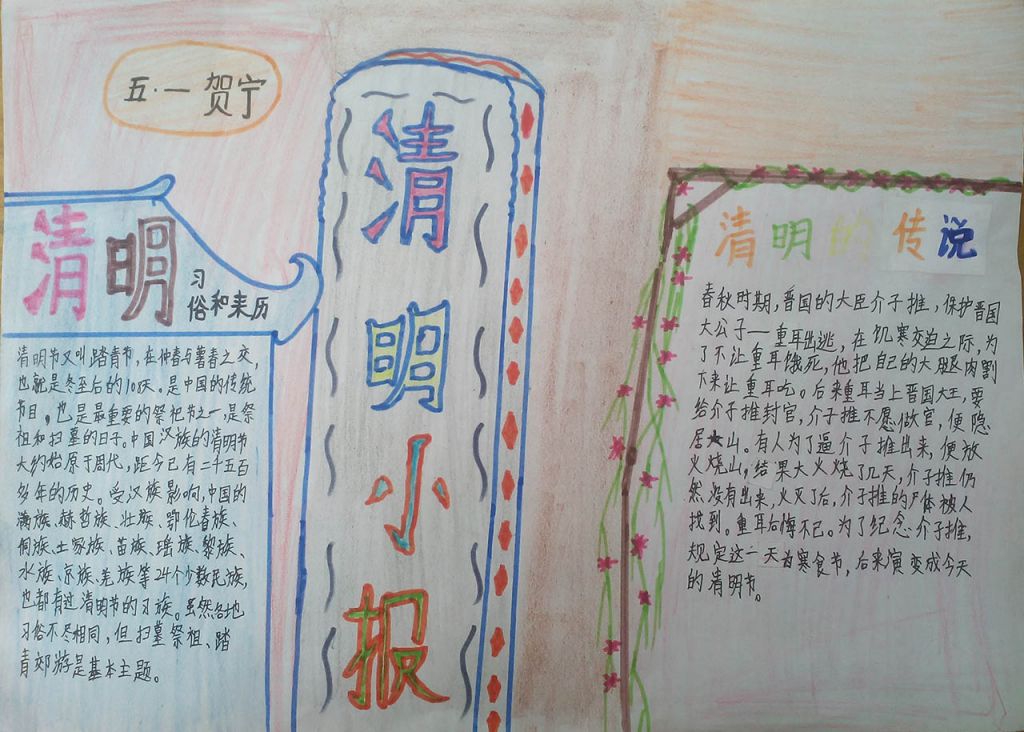 五·一 贺宁
清明
习
俗和来历
清明节又叫踏青节，在仲春与暮春之交，
也就是冬至后的108天。是中国的传统
节日。也是最重要的祭祀节之一是祭
祖和扫墓的日子。中国汉族的清明节
大约始原于周代，距今已有二千五百
多年的历史。受汉族影响，中国的
满族、赫哲族、壮族、鄂伦春族、
侗族、土家族、苗族、瑶族、黎族、
水族、京族、羌族等24个少数民族，
也都有过清明节的习族。虽然各地
习俗不尽相同，但扫墓祭祖、踏
青郊游是基本主题。
清明小报
清明的传说
春秋时期，晋国的大臣介子推，保护晋国
大公子—重耳出逃，在饥寒交迫之际，为
了不让重耳饿死，他把自己的大腿肉割
下来让重耳吃。后来重耳当上晋国大王，要
给介子推封官，介子推不愿做官，便隐
居山。有人为了逼介子推出来，便放
火烧山，结果大火烧了几天，介子推仍
然没有出来，火灭了后，介子推的尸体被人
找到。重耳后悔不已。为了纪念介子推，
规定这一天为寒食节，后来演变成今天
的清明节。